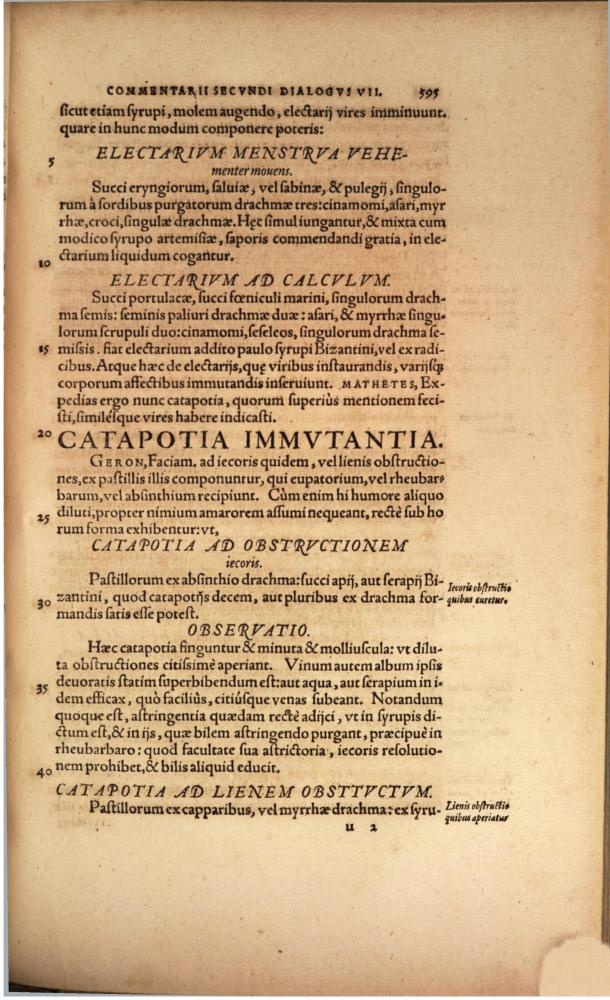 COMMENTARII SECVNDI DIALOGVS VII. 595
sicut etiam syrupi, molem augendo, electarij vires imminuunt.
quare in hunc modum componere poteris:
5 ELECTARIVM MENSTRVA VEHE-
menter mouens.
Succi eryngiorum, saluiæ, vel sabinæ, & pulegij, singulo-
rum à sordibus purgatorum drachmæ tres: cinamomi, asari, myr
rhæ, croci, singulæ drachmæ. Hęc simul iungantur, & mixta cum
modico syrupo artemisiæ, saporis commendandi gratia, in ele-
10 ctarium liquidum cogantur.
ELECTARIVM AD CALCVLVM.
Succi portulacæ, succi fœniculi marini, singulorum drach-
ma semis: seminis paliuri drachmæ duæ: asari, & myrrhæ singu-
lorum scrupuli duo: cinamomi, seseleos, singulorum drachma se-
15 missis. fiat electarium addito paulo syrupi Bizantini, vel ex radi-
cibus. Atque hæc de electarijs, quę viribus instaurandis, varijsq;
corporum affectibus immutandis inseruiunt. MATHETES, Ex-
pedias ergo nunc catapotia, quorum superiùs mentionem feci-
sti, similésque vires habere indicasti.
20 CATAPOTIA IMMVTANTIA.
GERON, Faciam. ad iecoris quidem, vel lienis obstructio-
nes, ex pastillis illis componuntur, qui eupatorium, vel rheubar-
barum, vel absinthium recipiunt. Cùm enim hi humore aliquo
25 diluti, propter nimium amarorem assumi nequeant, rectè sub ho
rum forma exhibentur: vt,
CATAPOTIA AD OBSTRVCTIONEM
iecoris.
Pastillorum ex absinthio drachma: succi apij, aut serapij Bi-
30 zantini, quod catapotijs decem, aut pluribus ex drachma for-
mandis satis esse potest.
Iecoris obstructio
quibus curetur.
OBSERVATIO.
Hæc catapotia finguntur & minuta & molliuscula: vt dilu-
ta obstructiones citissimè aperiant. Vinum autem album ipsis
35 deuoratis statim superbibendum est: aut aqua, aut serapium in i-
dem efficax, quò faciliùs, citiúsque venas subeant. Notandum
quoque est, astringentia quædam rectè adijci, vt in syrupis di-
ctum est, & in ijs, quæ bilem astringendo purgant, præcipuè in
rheubarbaro: quod facultate sua astrictoria, iecoris resolutio-
40 nem prohibet, & bilis aliquid educit.
CATAPOTIA AD LIENEM OBSTTVCTVM.
Pastillorum ex capparibus, vel myrrhæ drachma: ex syru-
Lienis obstructio
quibus aperiatur
u 2